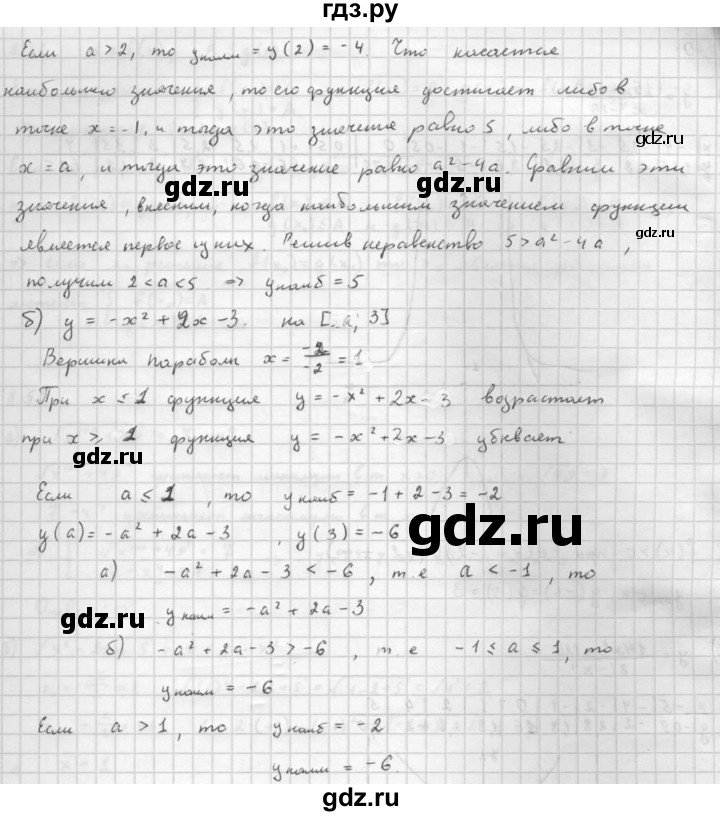 гдз.ру
Если a > 2, то yнаим = y(2) = -4. Что касается
наибольшего значения, то его функция достигает либо в
точке x = -1, и тогда это значение равно 5, либо в точке
x = a, и тогда это значение равно a² - 4a. Сравним эти
gdz.ru gdz.ru
значения, выясним, когда наибольшим значением функции
является первое из них. Решив неравенство 5 > a² - 4a,
получим 2 < a < 5 ⇒ yнаиб = 5
б) y = -x² + 2x - 3. на [a; 3]
Вершина параболы x = -2/-2 = 1
При x ≤ 1 функция y = -x² + 2x - 3 возрастает
при x ≥ 1 функция y = -x² + 2x - 3 убывает
gdz.ru
Если a ≤ 1, то yнаиб = -1 + 2 - 3 = -2
y(a) = -a² + 2a - 3, y(3) = -6
gdz.ru
а) -a² + 2a - 3 < -6, т.е a < -1, то
yнаим = -a² + 2a - 3
gdz.ru
б) -a² + 2a - 3 > -6, т.е -1 ≤ a ≤ 1, то
yнаим = -6
Если a > 1, то yнаиб = -2
yнаим = -6.
gdz.ru gdz.ru